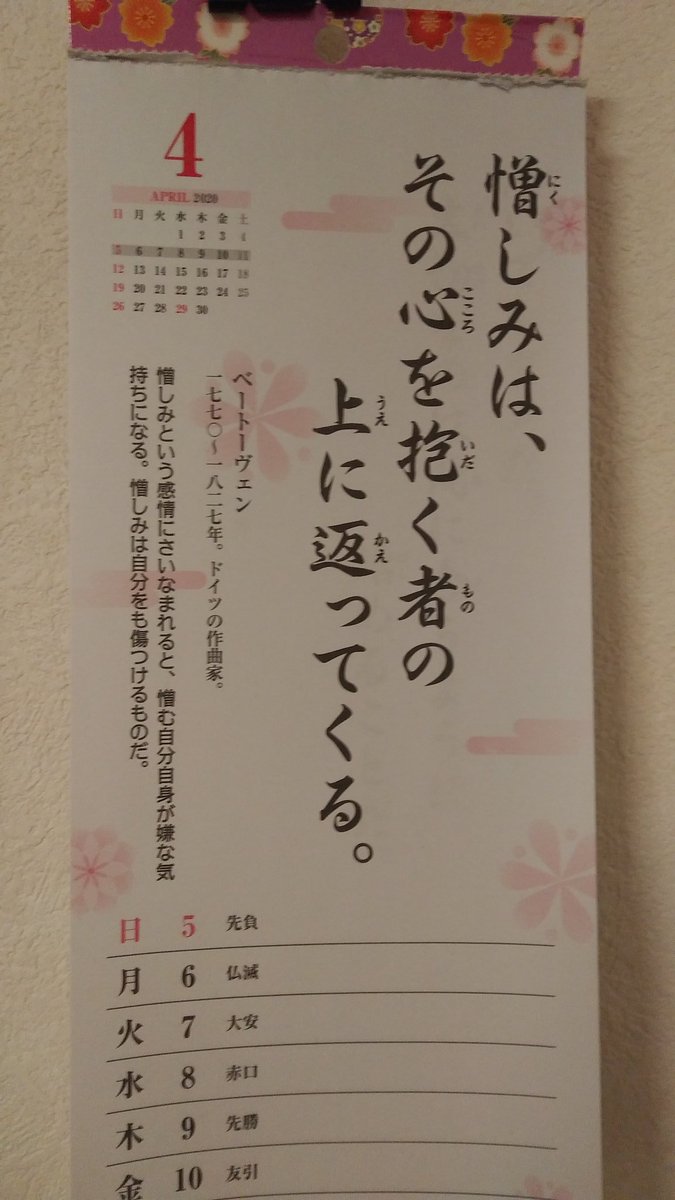 憎しみは、
その心を抱く者の
上に返ってくる。
にく
こころ
いだ
もの
うえ
かえ
ベートーヴェン
一七七〇〜一八二七年。ドイツの作曲家。
憎しみという感情にさいなまれると、憎む自分自身が嫌な気
持ちになる。憎しみは自分をも傷つけるものだ。
4
APRIL 2020
日 月 火 水 木 金 土
1 2 3 4
5 6 7 8 9 10 11
12 13 14 15 16 17 18
19 20 21 22 23 24 25
26 27 28 29 30
日 5 先負
月 6 仏滅
火 7 大安
水 8 赤口
木 9 先勝
金 10 友引